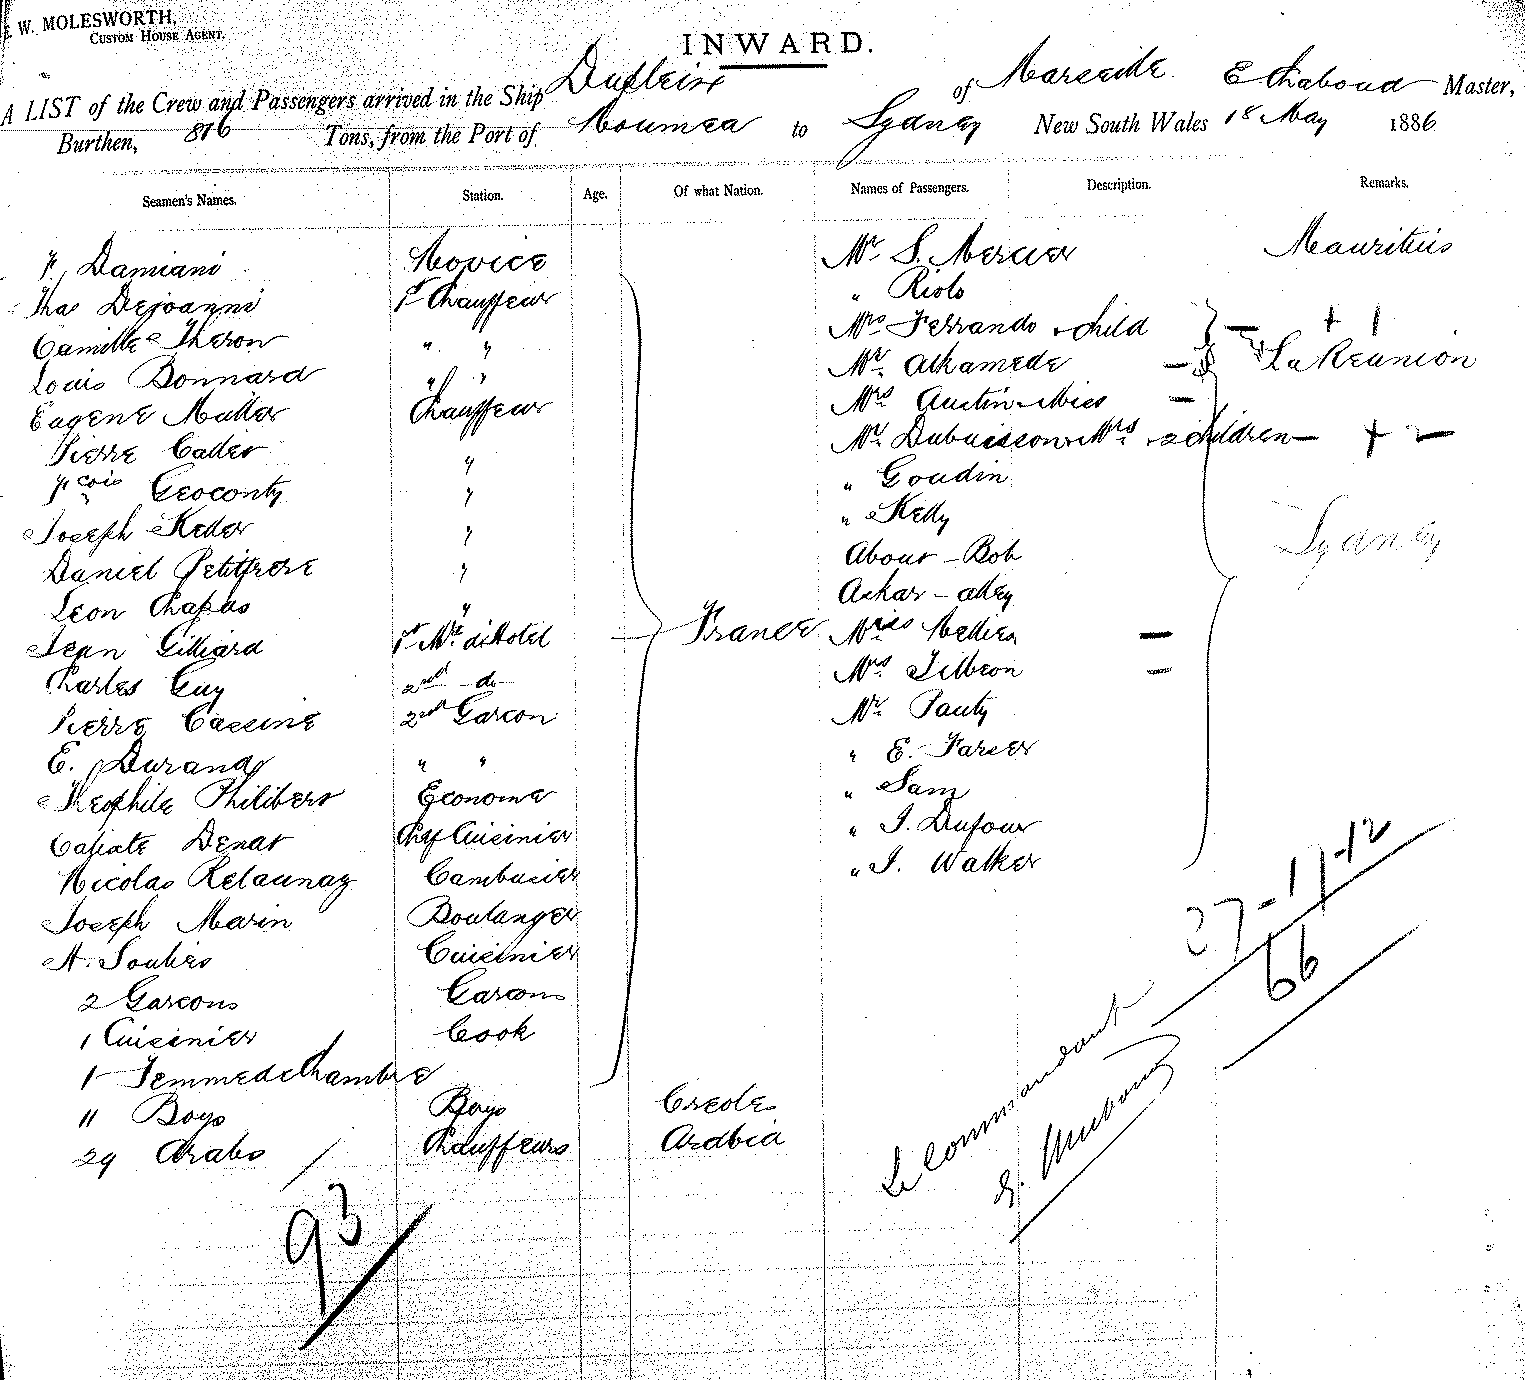 E. W. MOLESWORTH,
CUSTOM HOUSE AGENT.
INWARD.
A LIST of the Crew and Passengers arrived in the Ship Dupleix of Marseille E Chaboud Master,
Burthen, 876 Tons, from the Port of Noumea to Sydney New South Wales 18 May 1886
Seamen's Names. Station. Age. Of what Nation. Names of Passengers. Description. Remarks.
F. Damiani Novice Mr S. Mercier Mauritius
Thos Dejoanni 1st Chauffeur " Riols
Camille Theron " " Mrs Ferrando & child
Louis Bonnard " " Mr. Alkamede La Reunion
Eugene Muller Chauffeur Mrs Austin & Miss
Pierre Caller " Mr. Dubuisson & Mrs & 2 children
Fcois Geoconty " " Goudin
Joseph Keller " " Kelly Sydney
Daniel Petitfrere " Abour - Bob
Leon Chapus " Achar - alley
Jean Gilliard 1st Mr. d'Hotel France Miss Nellies
Charles Guy 2nd do Mrs Tilbeon
Pierre Cassine 2nd Garcon Mr. Pauty
E. Durand " " " E. Farser
Theophile Philibert Econome " Sam
Calixte Denat Chef Cuisinier " J. Dufour
Nicolas Relaunay Cambusier " J. Walker
Joseph Marin Boulanger 37-17-12
A. Soulies Cuisinier 66
2 Garcons Garcons
1 Cuisinier Cook
1 Femme de Chambre
11 Boys Boys Creoles
29 Arabs Chauffeurs Arabia
Le Commandant
93